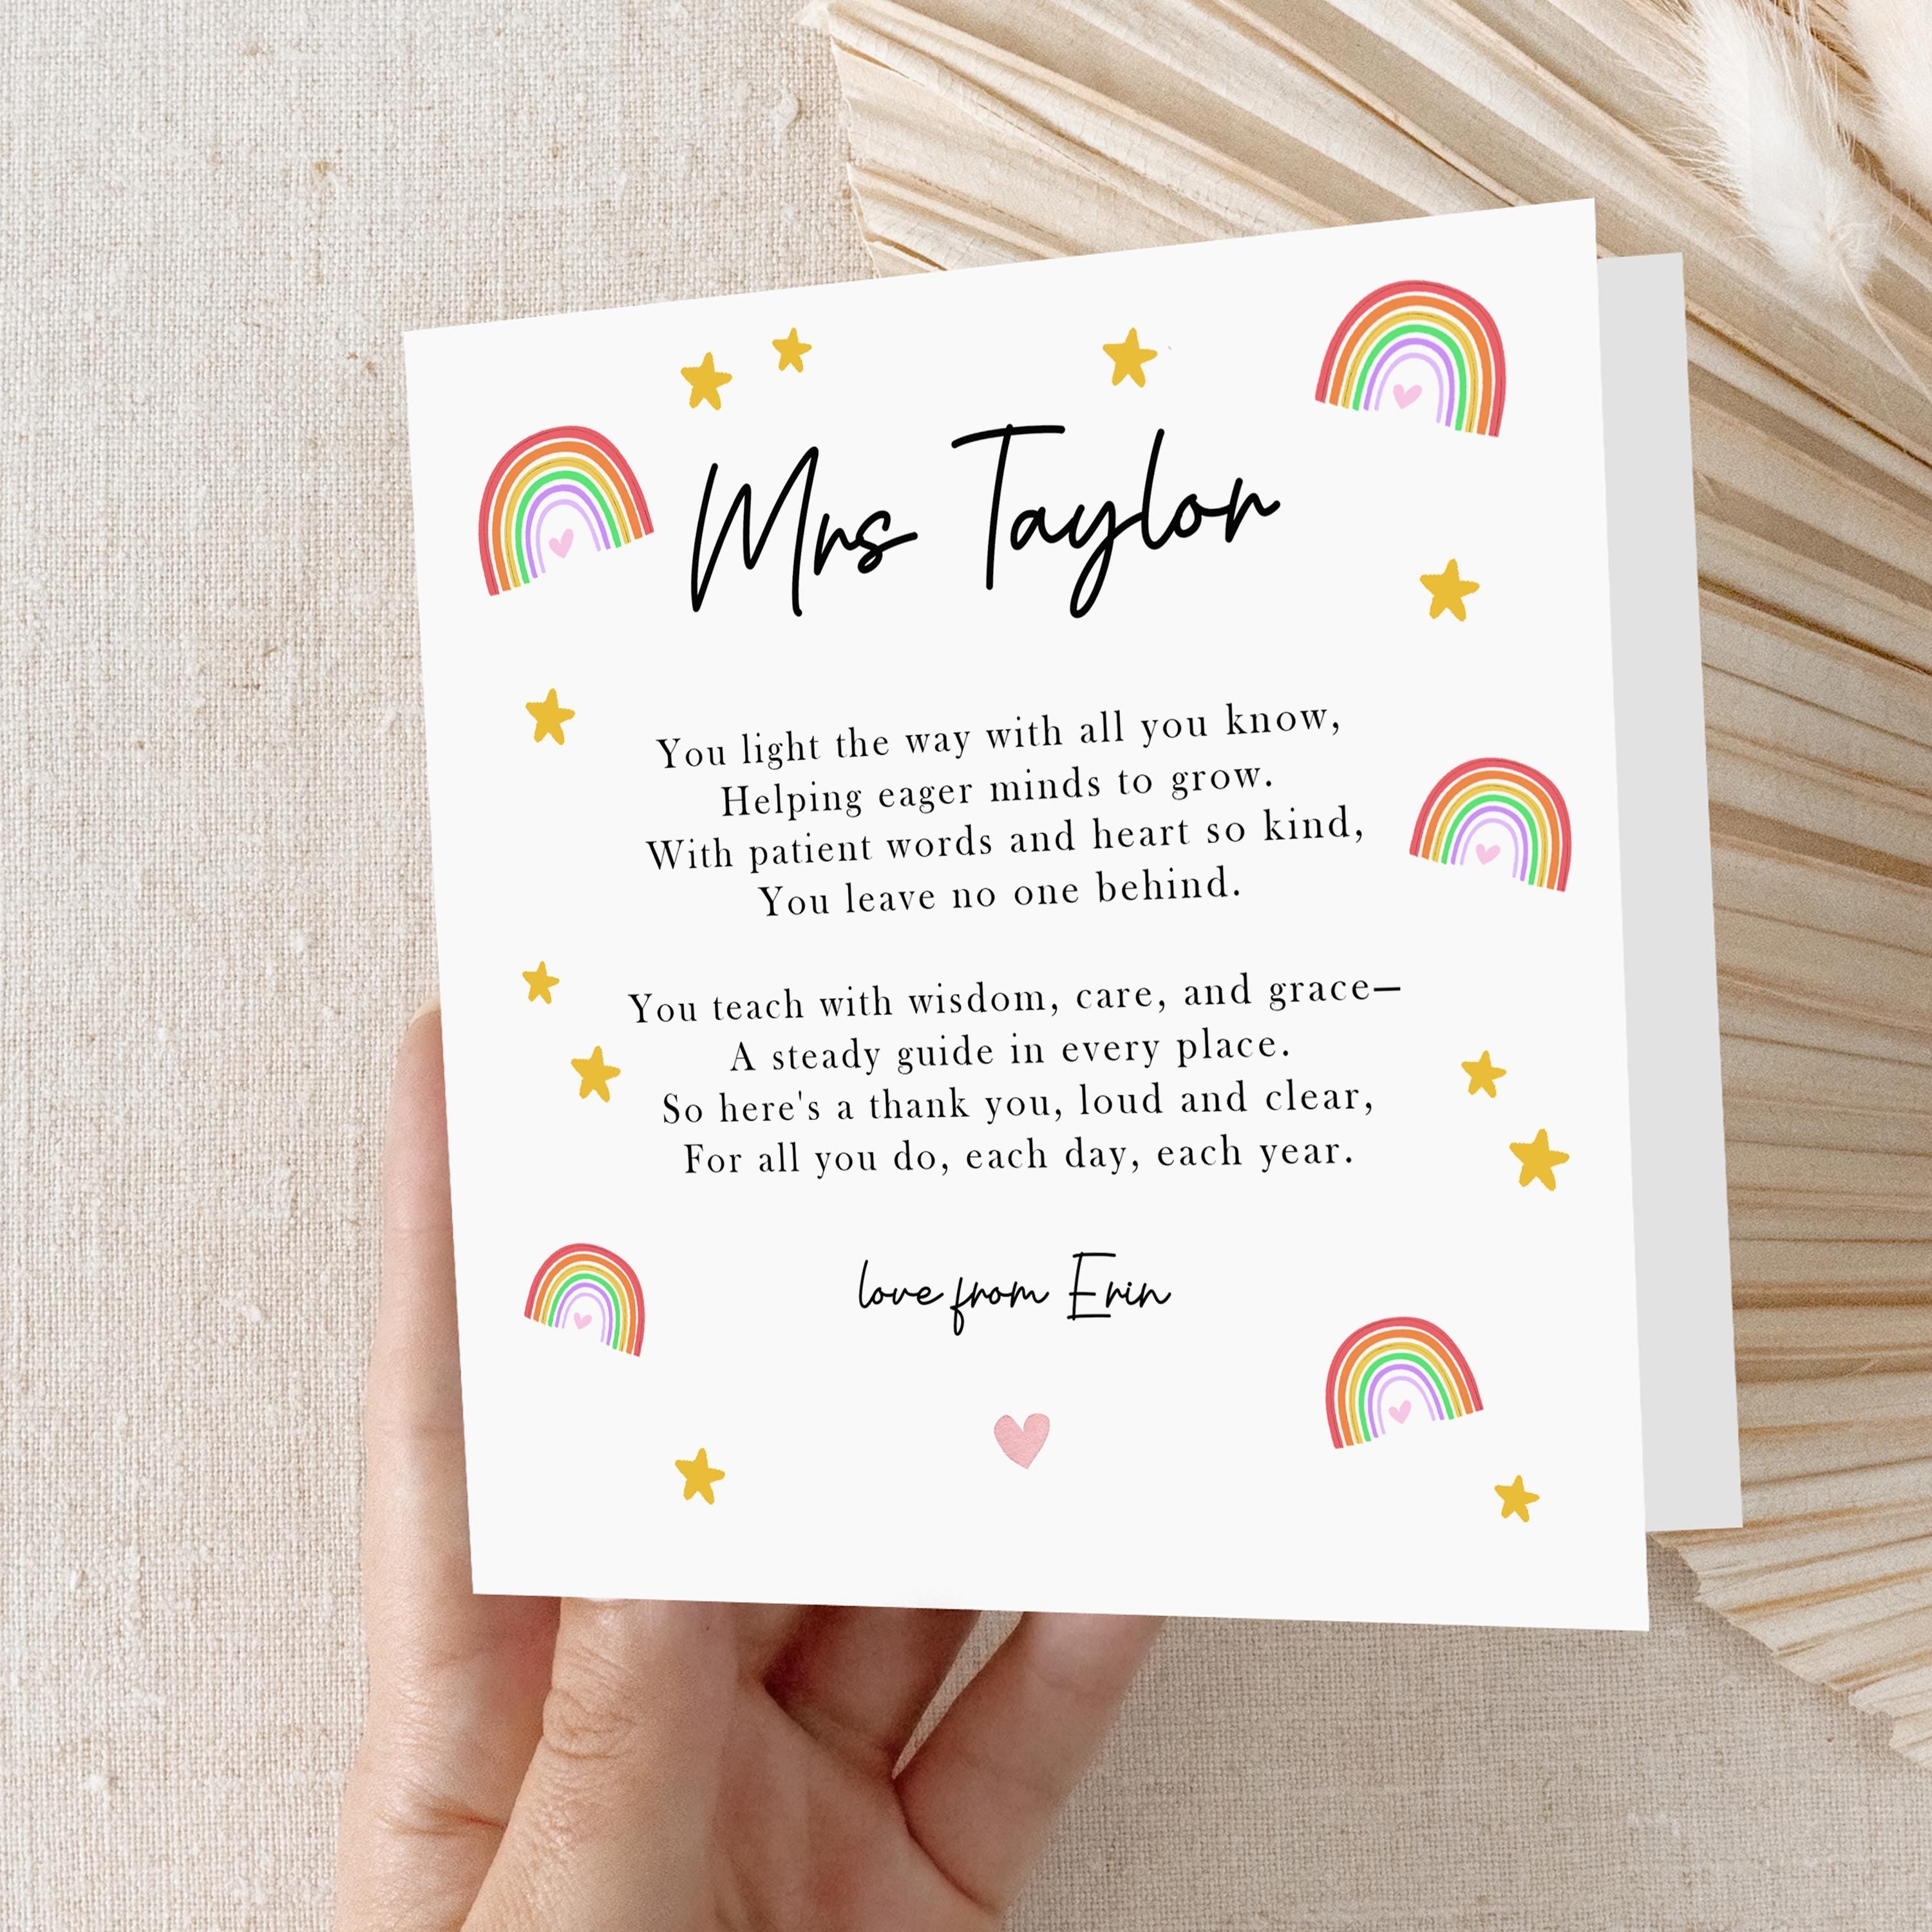 Mrs Taylor
You light the way with all you know,
Helping eager minds to grow.
With patient words and heart so kind,
You leave no one behind.
You teach with wisdom, care, and grace—
A steady guide in every place.
So here's a thank you, loud and clear,
For all you do, each day, each year.
love from Erin